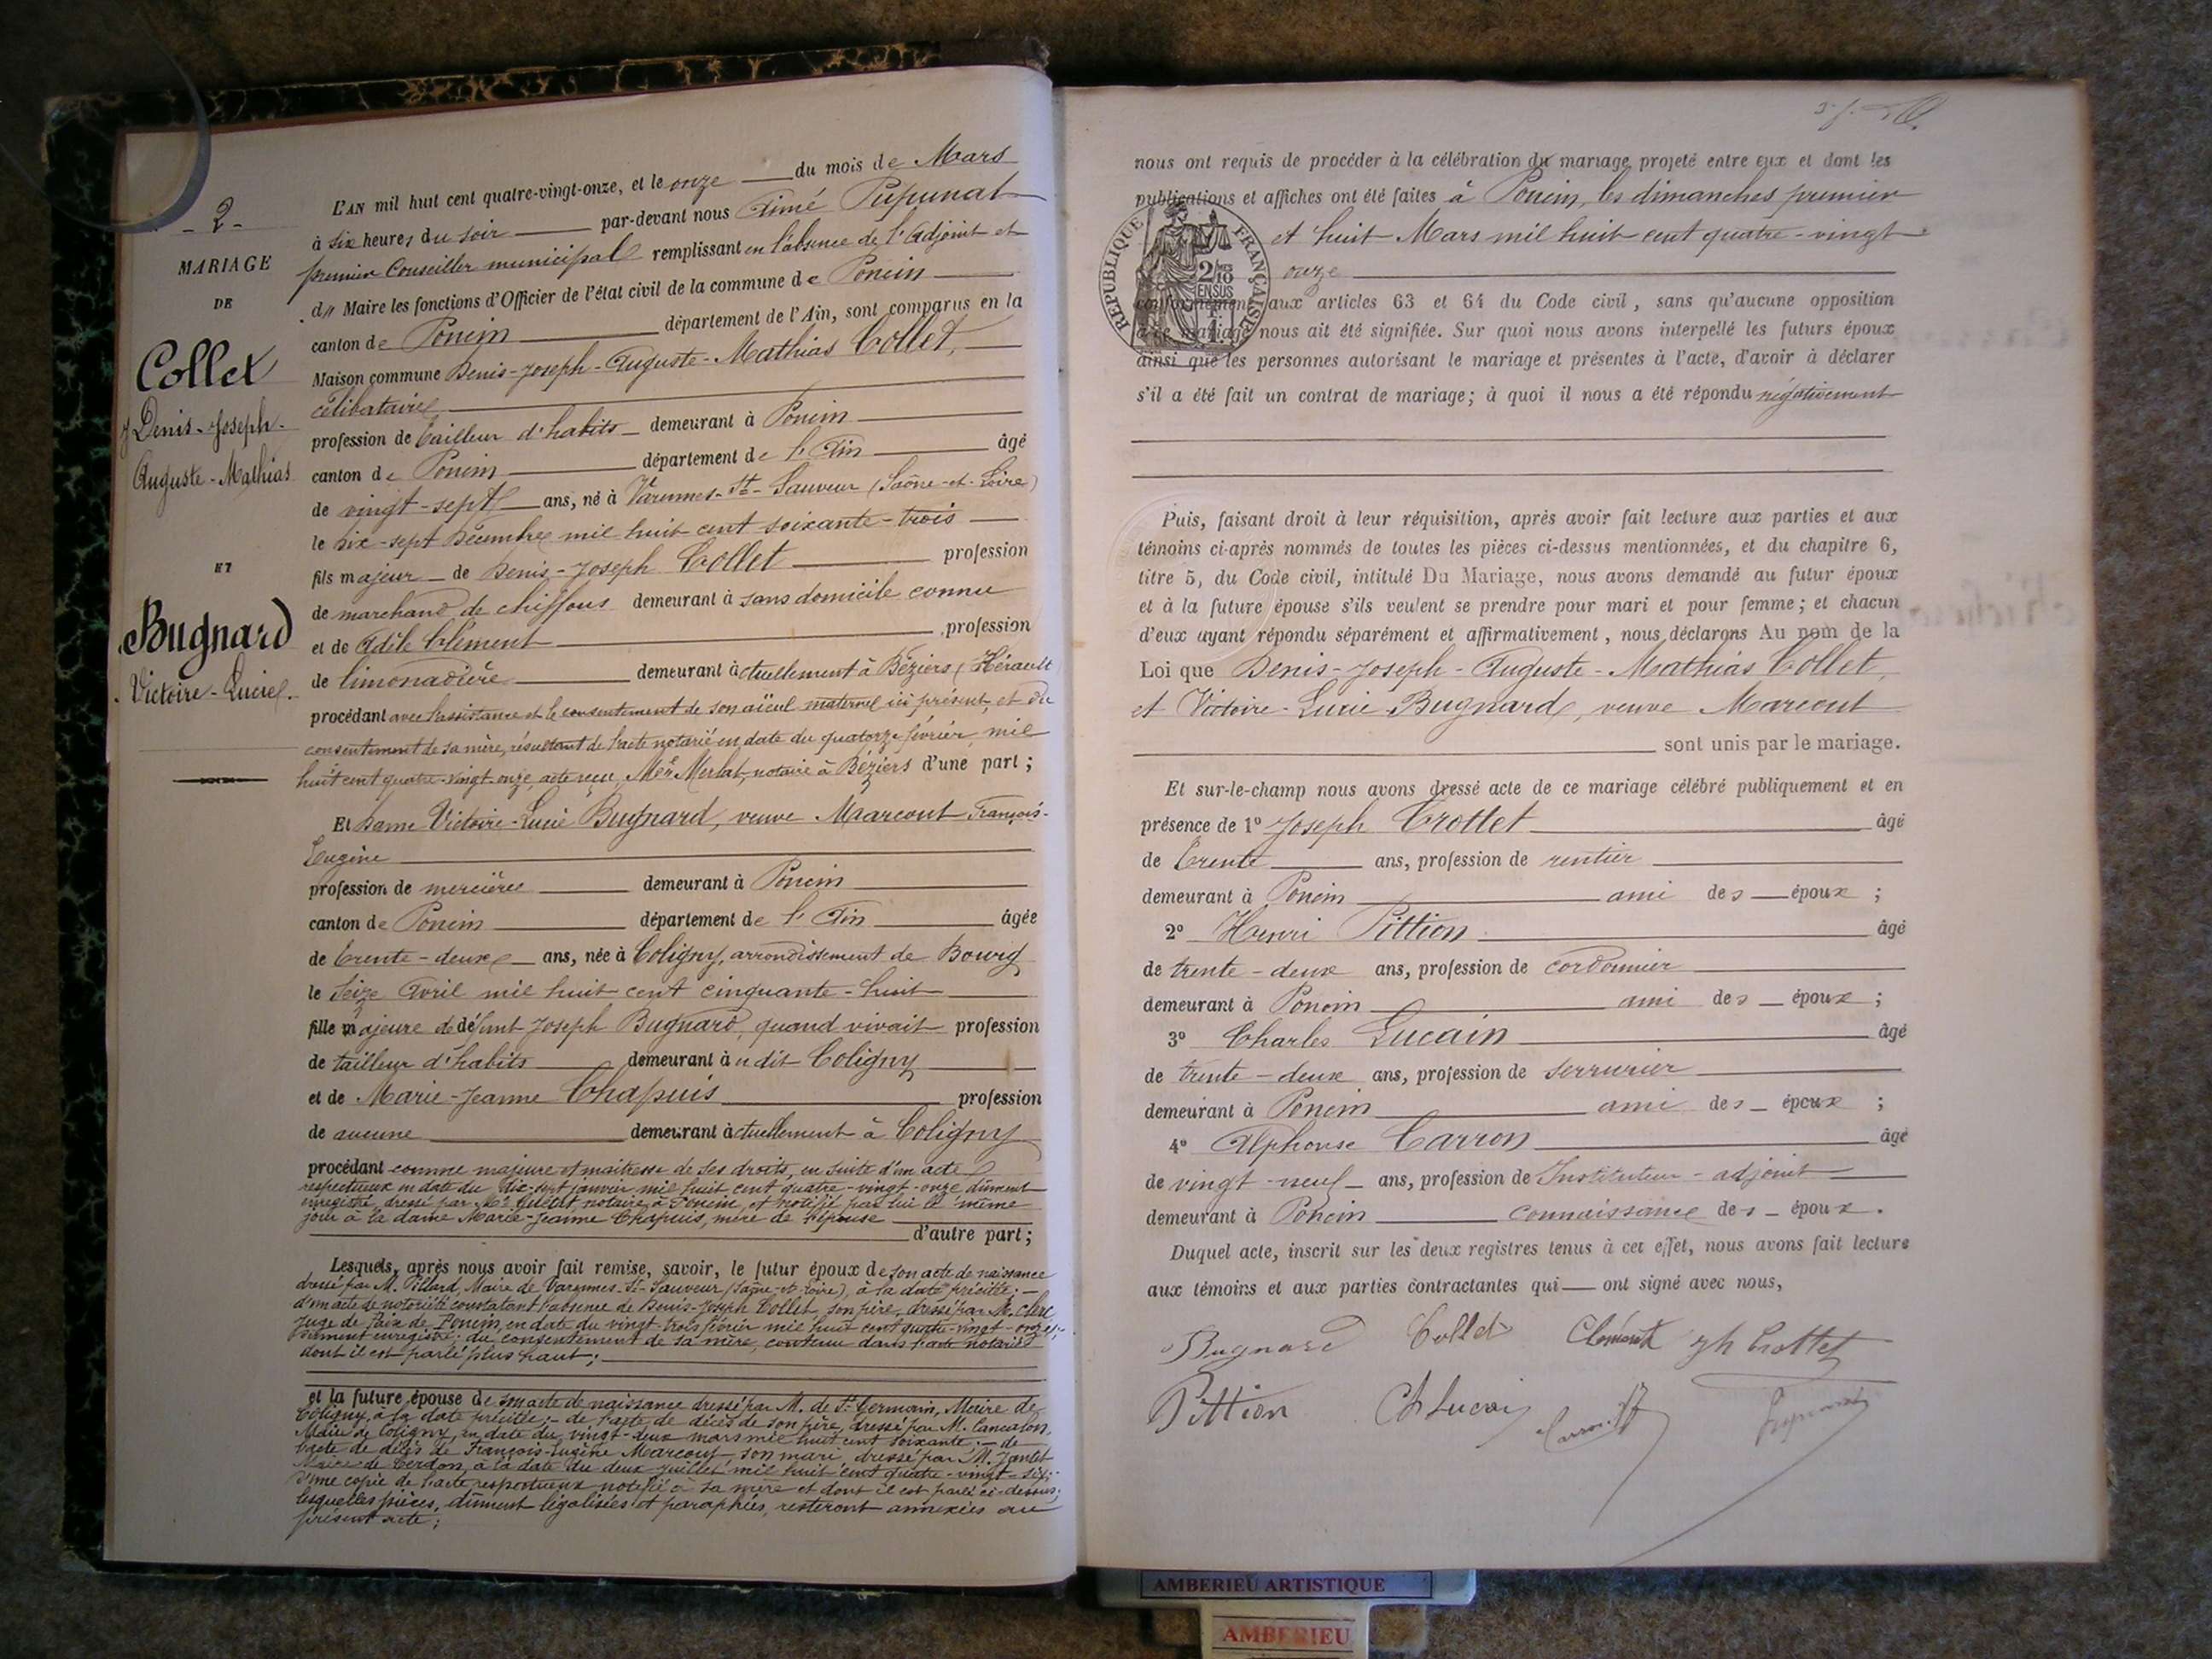 - 2 -
MARIAGE
DE
Collet
Denis-Joseph-
Auguste-Mathias
ET
Bugnard
Victoire-Lucie.
L'AN mil huit cent quatre-vingt-onze, et le onze du mois de Mars
à six heures du soir par-devant nous Aimé Pupunat
premier Conseiller municipal remplissant en l'absence de l'Adjoint et
du Maire les fonctions d'Officier de l'état civil de la commune de Poncin
canton de Poncin département de l'Ain, sont comparus en la
Maison commune Denis-Joseph-Auguste-Mathias Collet,
célibataire
profession de tailleur d'habits demeurant à Poncin
canton de Poncin département de l'Ain âgé
de vingt-sept ans, né à Varennes-St-Sauveur (Saône-et-Loire)
le dix-sept Décembre mil huit cent soixante-trois
fils majeur de Denis-Joseph Collet profession
de marchand de chiffons demeurant à sans domicile connu
et de Adèle Clément profession
de limonadière demeurant actuellement à Béziers (Hérault
procédant avec l'assistance et le consentement de son aïeul maternel ici présent, et du
consentement de sa mère, résultant de l'acte notarié en date du quatorze février, mil
huit cent quatre-vingt-onze, acte reçu, Me Merlat, notaire à Béziers d'une part ;
Et Dame Victoire-Lucie Bugnard, veuve Marcout François-
Eugène
profession de mercière demeurant à Poncin
canton de Poncin département de l'Ain âgée
de trente-deux ans, née à Coligny, arrondissement de Bourg
le seize Avril mil huit cent cinquante-huit
fille majeure de défunt Joseph Bugnard, quand vivait profession
de tailleur d'habits demeurant audit Coligny
et de Marie-Jeanne Chapuis profession
de aucune demeurant actuellement à Coligny
procédant comme majeure et maîtresse de ses droits, en suite d'un acte
respectueux en date du dix-sept janvier mil huit cent quatre-vingt-onze, dûment
enregistré, dressé par Me notaire à Poncin, et notifié par lui le même
jour à la dame Marie-Jeanne Chapuis, mère de l'épouse
d'autre part ;
Lesquels, après nous avoir fait remise, savoir, le futur époux de son acte de naissance
dressé par M. Pillard, Maire de Varennes-St-Sauveur (Saône-et-Loire), à la date précitée ; -
d'un acte de notoriété constatant l'absence de Denis-Joseph Collet, son père, dressé par M. Clerc
Juge de Paix de Poncin, en date du vingt-trois février mil huit cent quatre-vingt-onze ;
dûment enregistré ; du consentement de sa mère, contenu dans l'acte notarié
dont il est parlé plus haut ;
et la future épouse de son acte de naissance dressé par M. de St-Germain, Maire de
Coligny, à la date précitée ; - de l'acte de décès de son père, dressé par M. Cancalon,
Maire de Coligny, en date du vingt-deux mars mil huit cent soixante ; - de
l'acte de décès de François-Eugène Marcout, son mari, dressé par M. Jantet
Maire de Cerdon, à la date du deux juillet mil huit cent quatre-vingt-six ;
d'une copie de l'acte respectueux notifié à sa mère et dont il est parlé ci-dessus ;
lesquelles pièces, dûment légalisées et paraphées, resteront annexées au
présent acte ;
nous ont requis de procéder à la célébration du mariage projeté entre eux et dont les
publications et affiches ont été faites à Poncin, les dimanches premier
et huit Mars mil huit cent quatre-vingt-
onze
RÉPUBLIQUE FRANÇAISE
2/10 EN SUS
conformément aux articles 63 et 64 du Code civil, sans qu'aucune opposition
à ce mariage nous ait été signifiée. Sur quoi nous avons interpellé les futurs époux
ainsi que les personnes autorisant le mariage et présentes à l'acte, d'avoir à déclarer
s'il a été fait un contrat de mariage ; à quoi il nous a été répondu négativement
Puis, faisant droit à leur réquisition, après avoir fait lecture aux parties et aux
témoins ci-après nommés de toutes les pièces ci-dessus mentionnées, et du chapitre 6,
titre 5, du Code civil, intitulé Du Mariage, nous avons demandé au futur époux
et à la future épouse s'ils veulent se prendre pour mari et pour femme ; et chacun
d'eux ayant répondu séparément et affirmativement, nous déclarons Au nom de la
Loi que Denis-Joseph-Auguste-Mathias Collet,
et Victoire-Lucie Bugnard, veuve Marcout
sont unis par le mariage.
Et sur-le-champ nous avons dressé acte de ce mariage célébré publiquement et en
présence de 1° Joseph Trottet âgé
de trente ans, profession de rentier
demeurant à Poncin ami des époux ;
2° Henri Pittion âgé
de trente-deux ans, profession de cordonnier
demeurant à Poncin ami des époux ;
3° Charles Lucain âgé
de trente-deux ans, profession de serrurier
demeurant à Poncin ami des époux ;
4° Alphonse Carron âgé
de vingt-neuf ans, profession de Instituteur-adjoint
demeurant à Poncin connaissance des époux.
Duquel acte, inscrit sur les deux registres tenus à cet effet, nous avons fait lecture
aux témoins et aux parties contractantes qui ont signé avec nous,
Bugnard Collet Clément Jh Trottet
Pittion Ch Lucain Carron Pupunat
AMBERIEU ARTISTIQUE
AMBERIEU